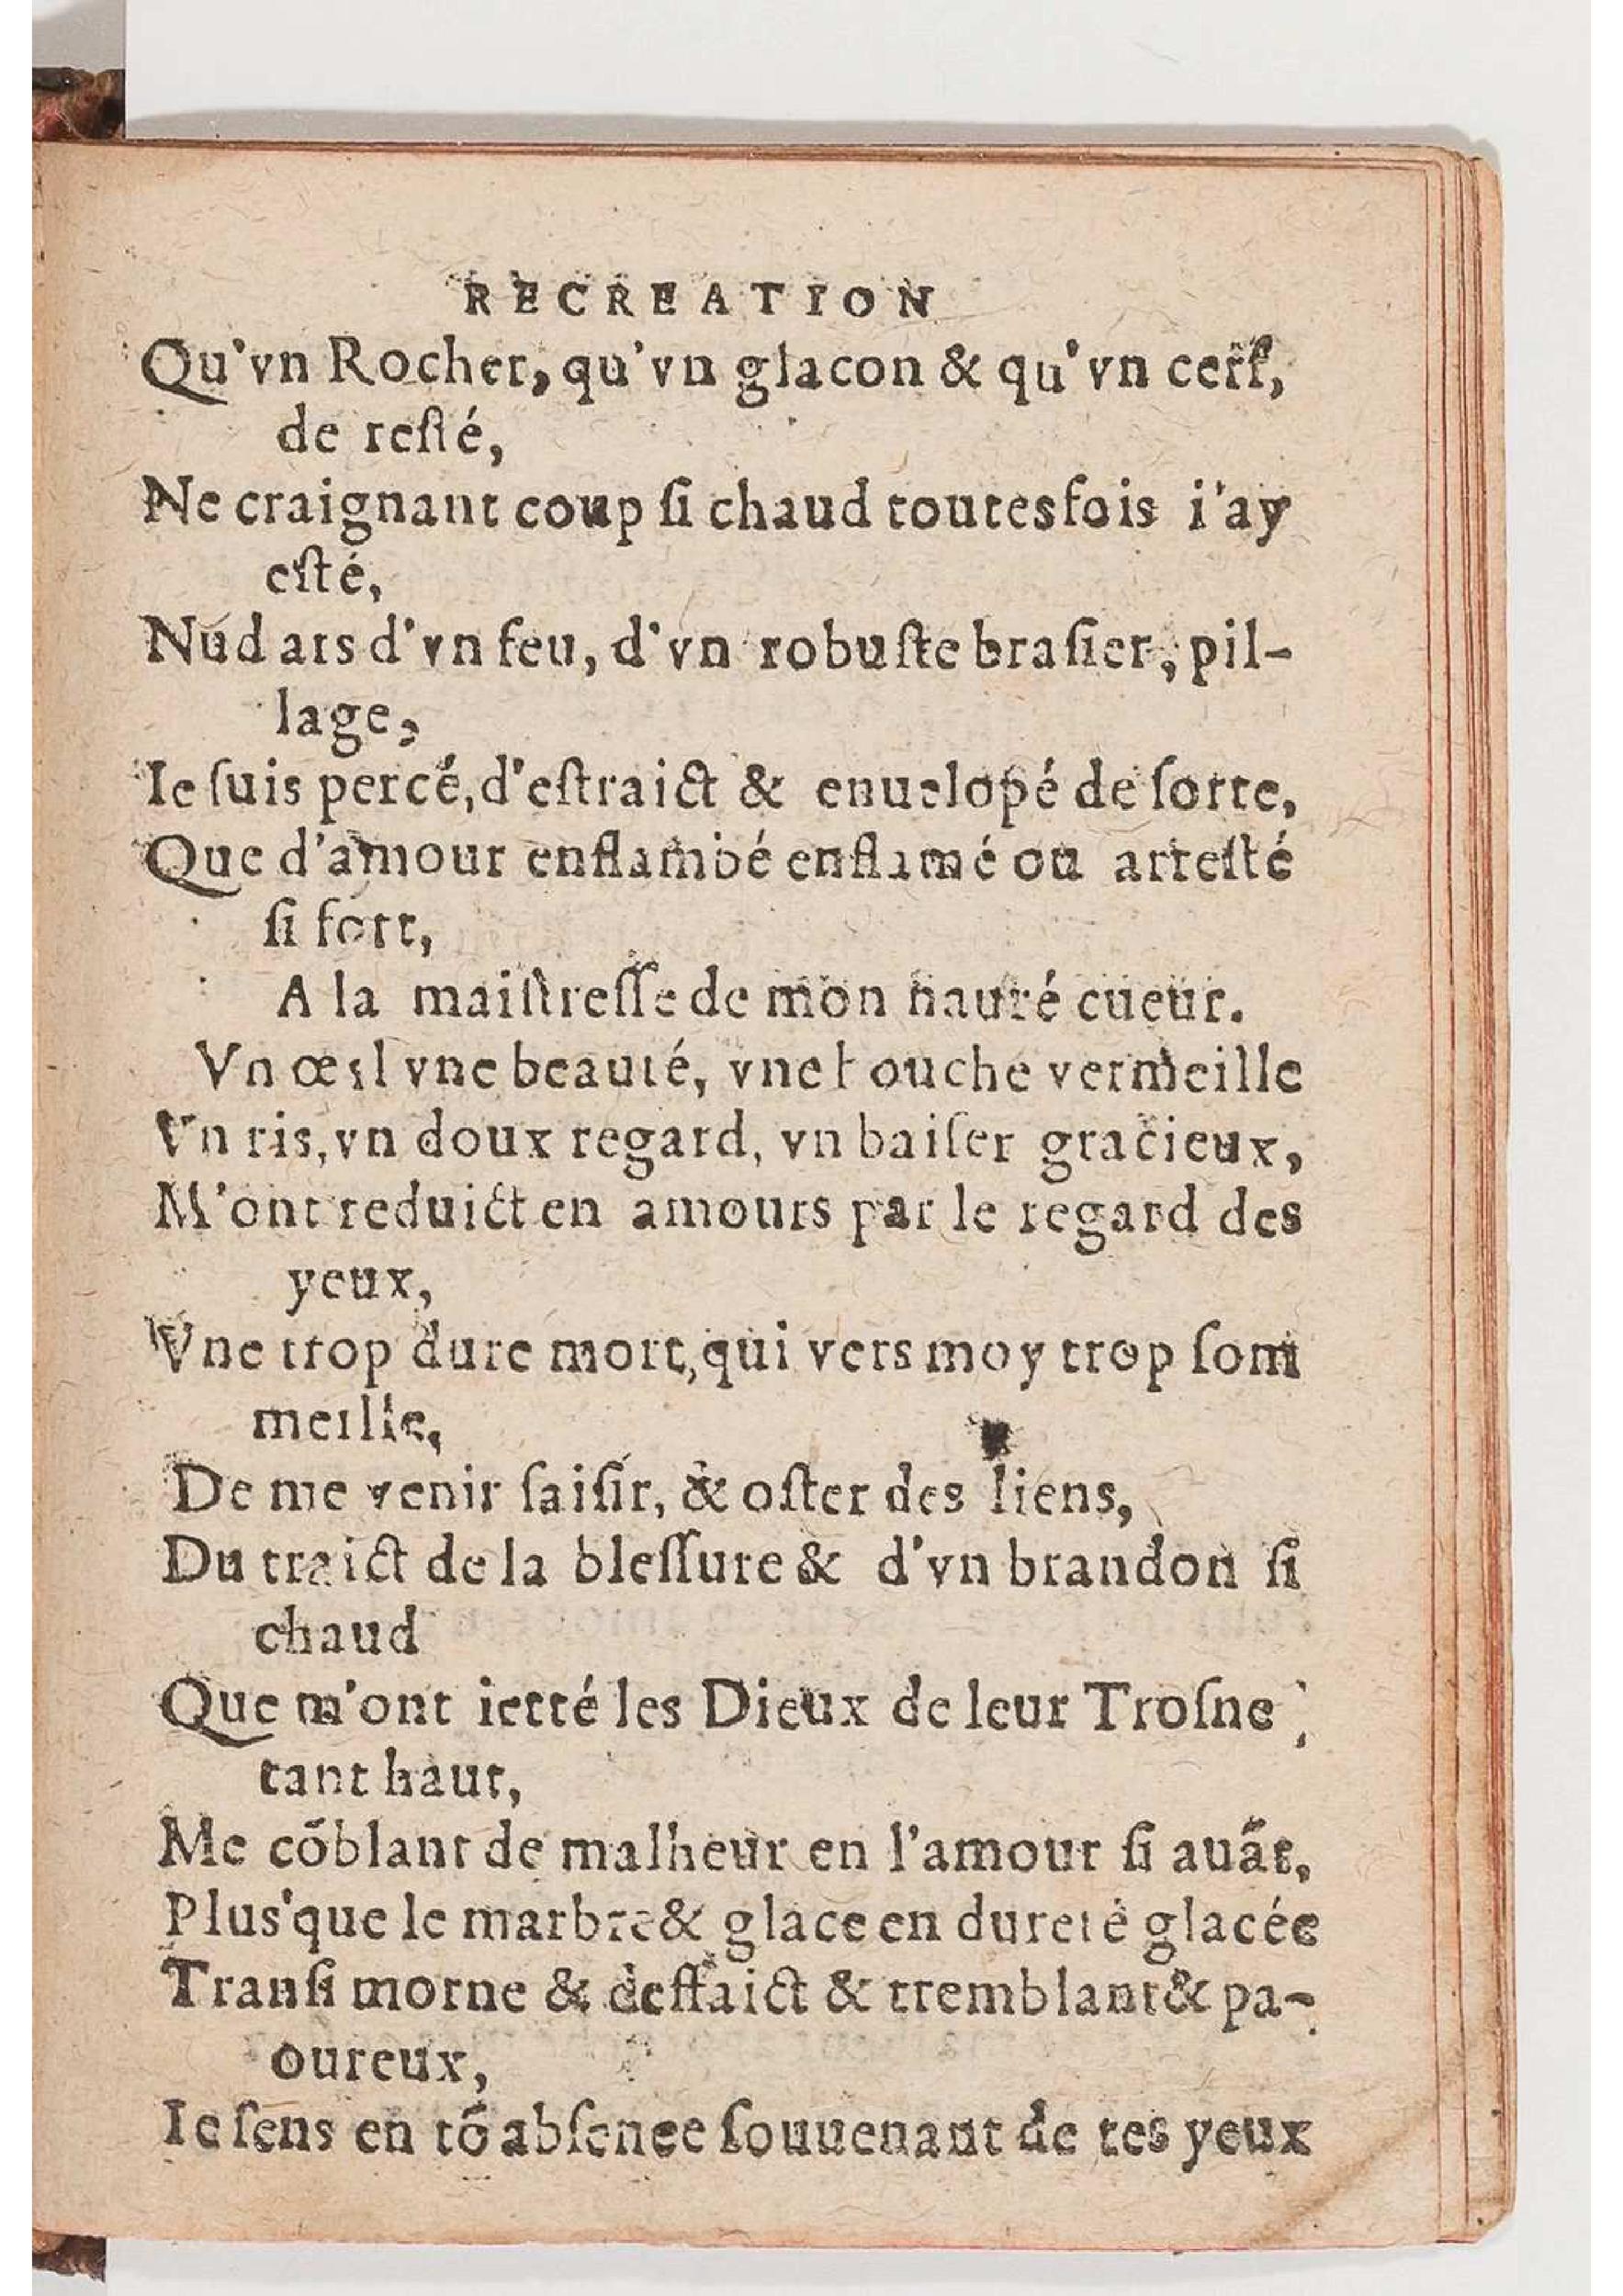 RECREATION
Qu'vn Rocher, qu'vn glacon & qu'vn cerf,
de resté,
Ne craignant coup ſi chaud toutesfois i'ay
eſté,
Nud ars d'vn feu, d'vn robuſte braſier, pil-
lage,
Ie ſuis percé, d'eſtraict & enuelopé de ſorte,
Que d'amour enflambé enflamé ou arreſté
ſi fort,
A la maiſtreſſe de mon nauré cueur.
Vn œil vne beauté, vne bouche vermeille
Vn ris, vn doux regard, vn baiſer gracieux,
M'ont reduict en amours par le regard des
yeux,
Vne trop dure mort, qui vers moy trop ſom
meille,
De me venir ſaiſir, & oſter des liens,
Du traict de la bleſſure & d'vn brandon ſi
chaud
Que m'ont ietté les Dieux de leur Troſne,
tant haut,
Me cõblant de malheur en l'amour ſi auãt,
Plus'que le marbre & glace en dureté glacée
Tranſi morne & deffaict & tremblant & pa-
oureux,
Ie ſens en tõ abſence ſouuenant de tes yeux